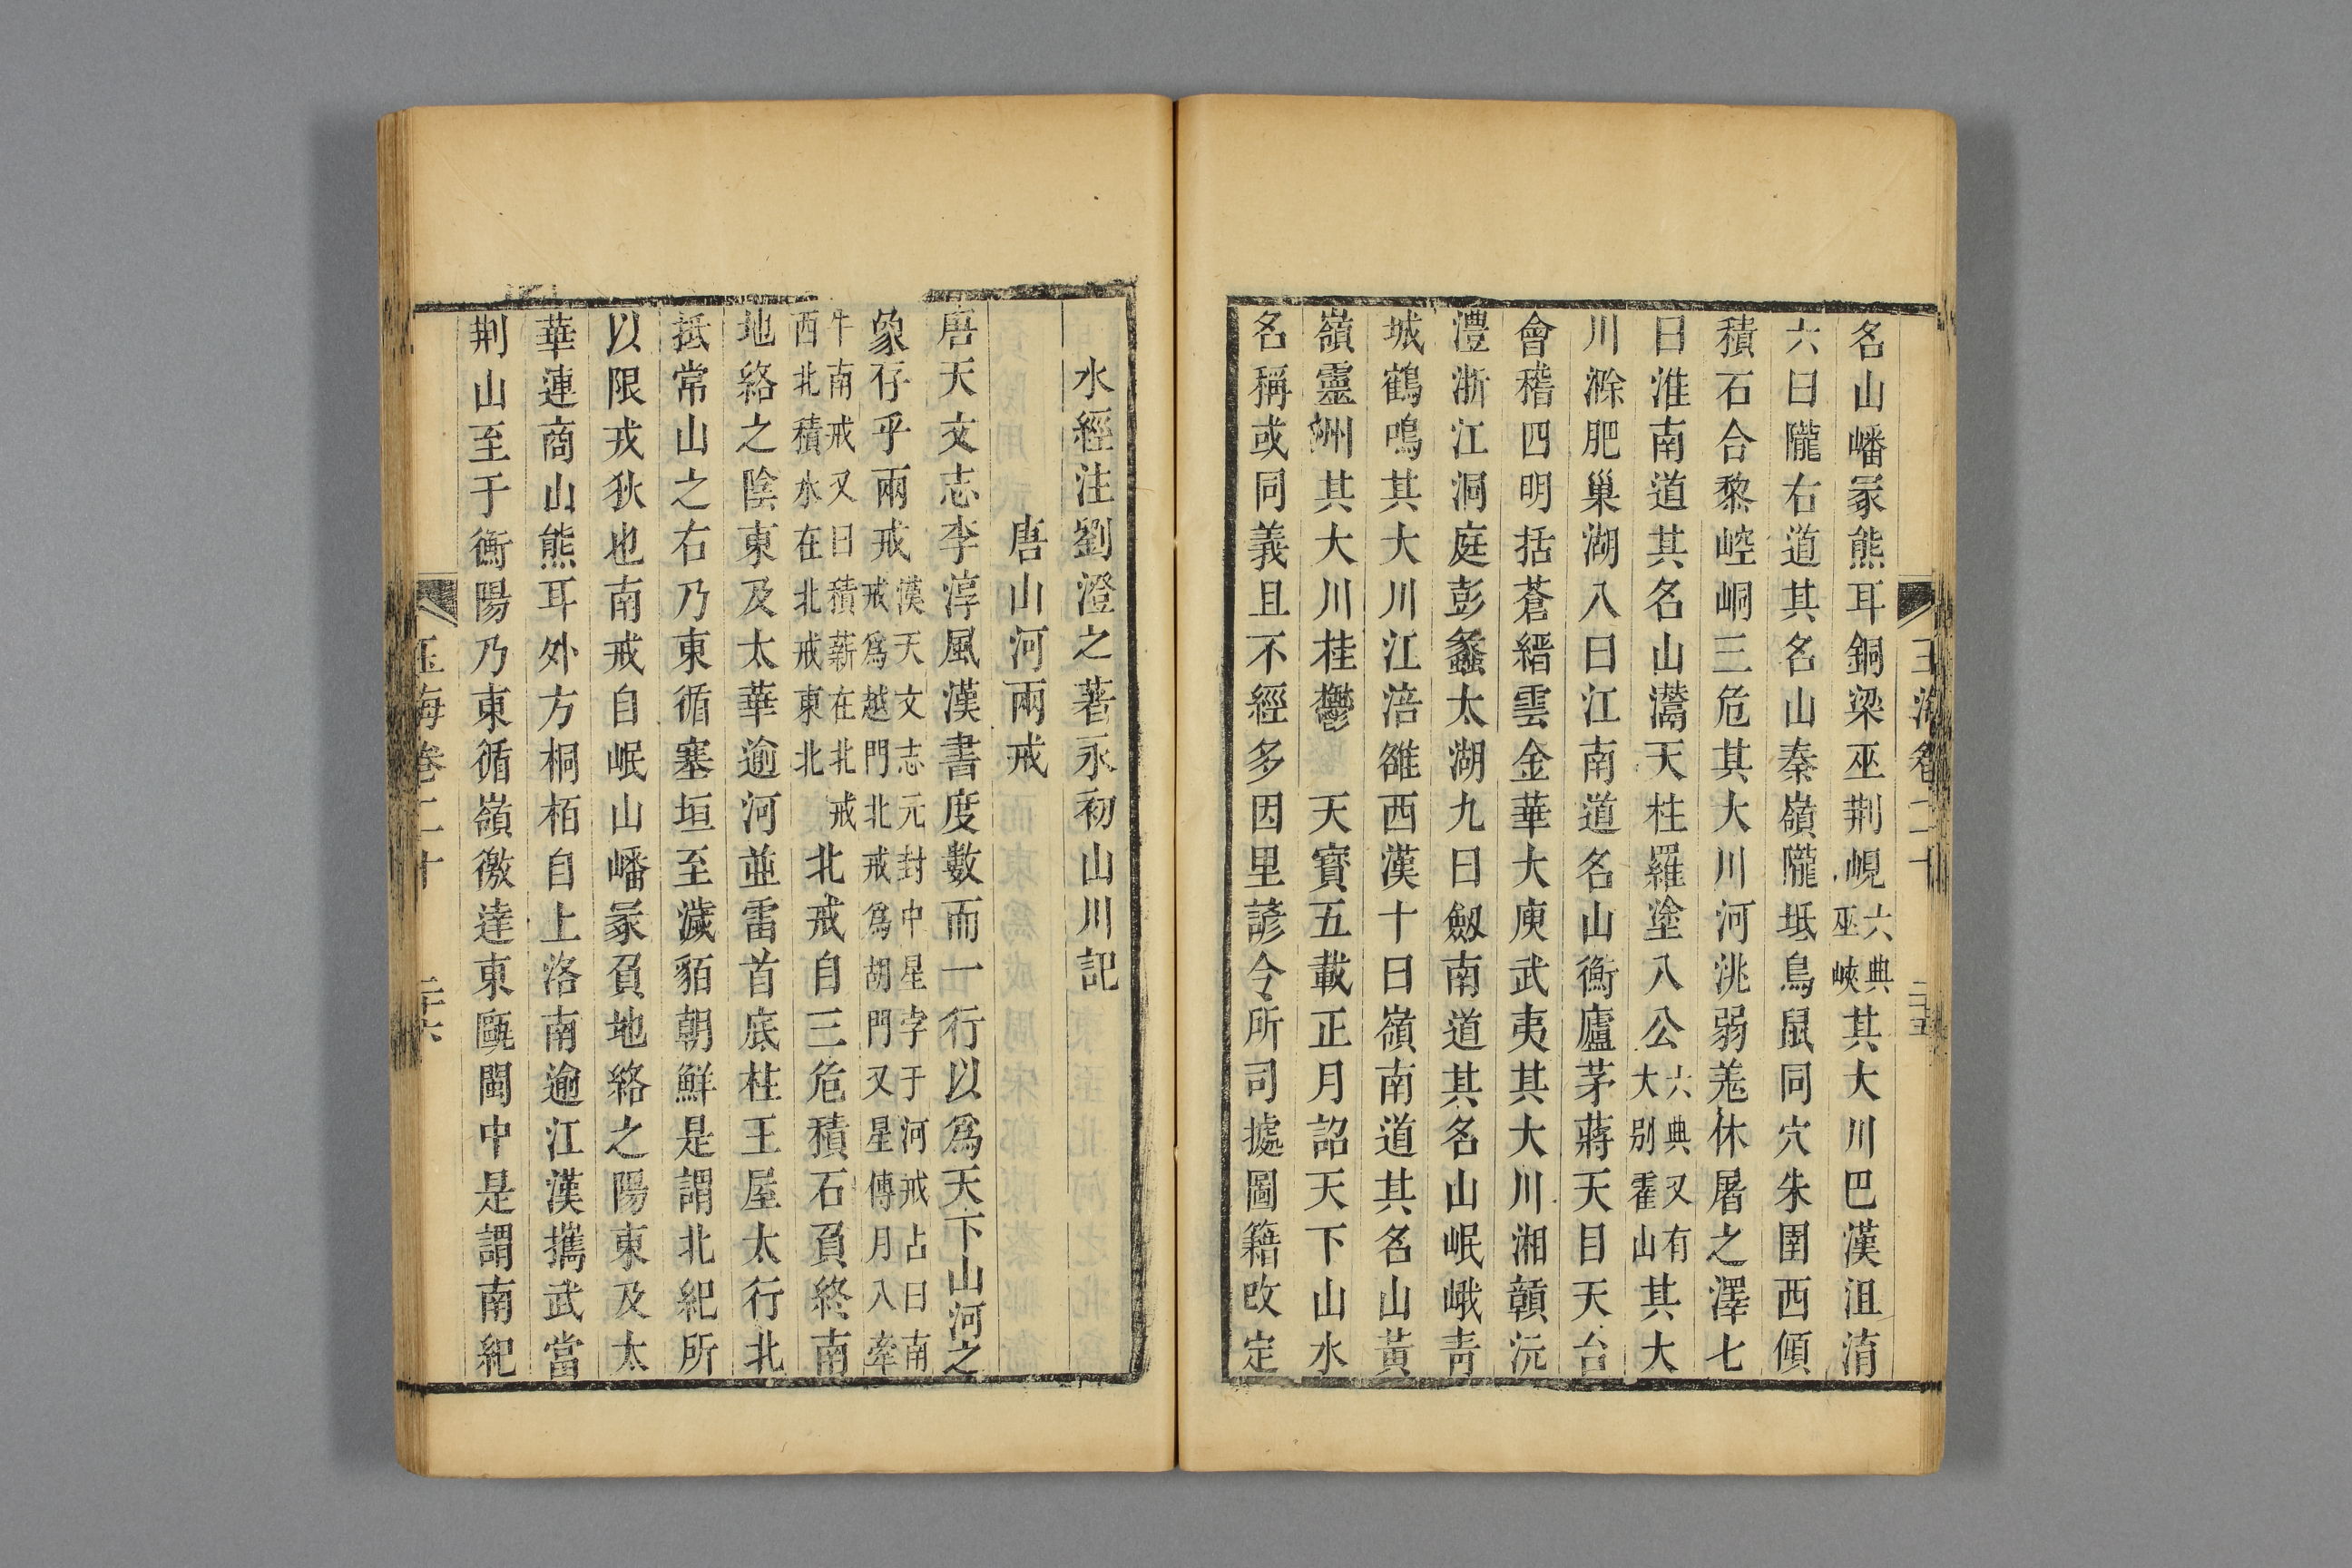 玉海卷二十
二五
名山嶓冢熊耳銅梁巫荆峴六典巫峽其大川巴漢沮淯
六曰隴右道其名山秦嶺隴坻鳥鼠同穴朱圉西傾
積石合黎崆峒三危其大川河洮弱羗休屠之澤七
曰淮南道其名山灊天柱羅塗八公六典又有大別霍山其大
川滁肥巢湖八曰江南道名山衡廬茅蔣天目天台
會稽四明括蒼縉雲金華大庾武夷其大川湘贛沅
澧浙江洞庭彭蠡太湖九曰劔南道其名山岷峨靑
城鶴鳴其大川江涪雒西漢十曰嶺南道其名山黃
嶺靈洲其大川桂鬱 天寳五載正月詔天下山水
名稱或同義且不經多因里諺令所司據圖籍改定
水經注劉澄之著永初山川記
唐山河兩戒
唐天文志李淳風漢書度數而一行以爲天下山河之
象存乎兩戒漢天文志元封中星孛于河戒占曰南戒爲越門北戒爲胡門又星傳月入牽
牛南戒又曰積薪在北戒西北積水在北戒東北北戒自三危積石負終南
地絡之陰東及太華逾河並雷首底柱王屋太行北
抵常山之右乃東循塞垣至濊貊朝鮮是謂北紀所
以限戎狄也南戒自岷山嶓冢負地絡之陽東及太
華連商山熊耳外方桐栢自上洛南逾江漢攜武當
荆山至于衡陽乃東循嶺徼達東甌閩中是謂南紀
玉海卷二十
二十六